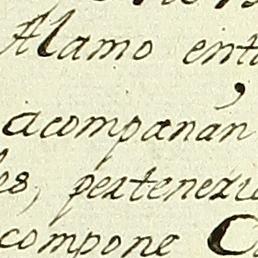 Alamo ent
acompanan
es, pertenezi
compone C